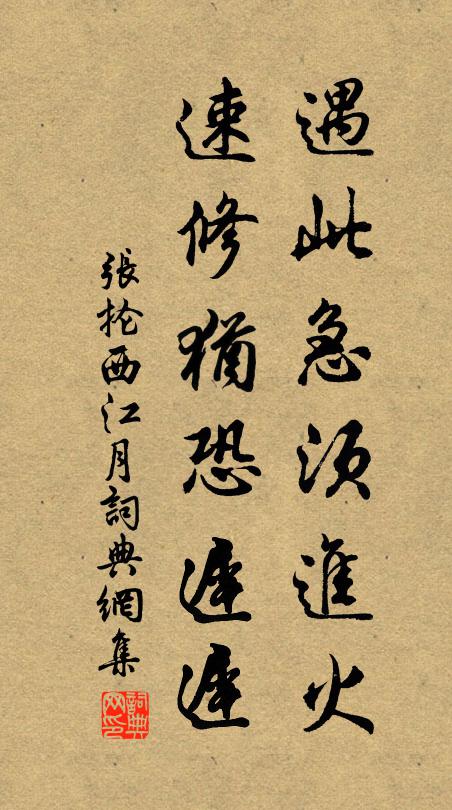 遇此急須進火
速修猶恐遲遲
張掄西江月詞典網集
詞典网印